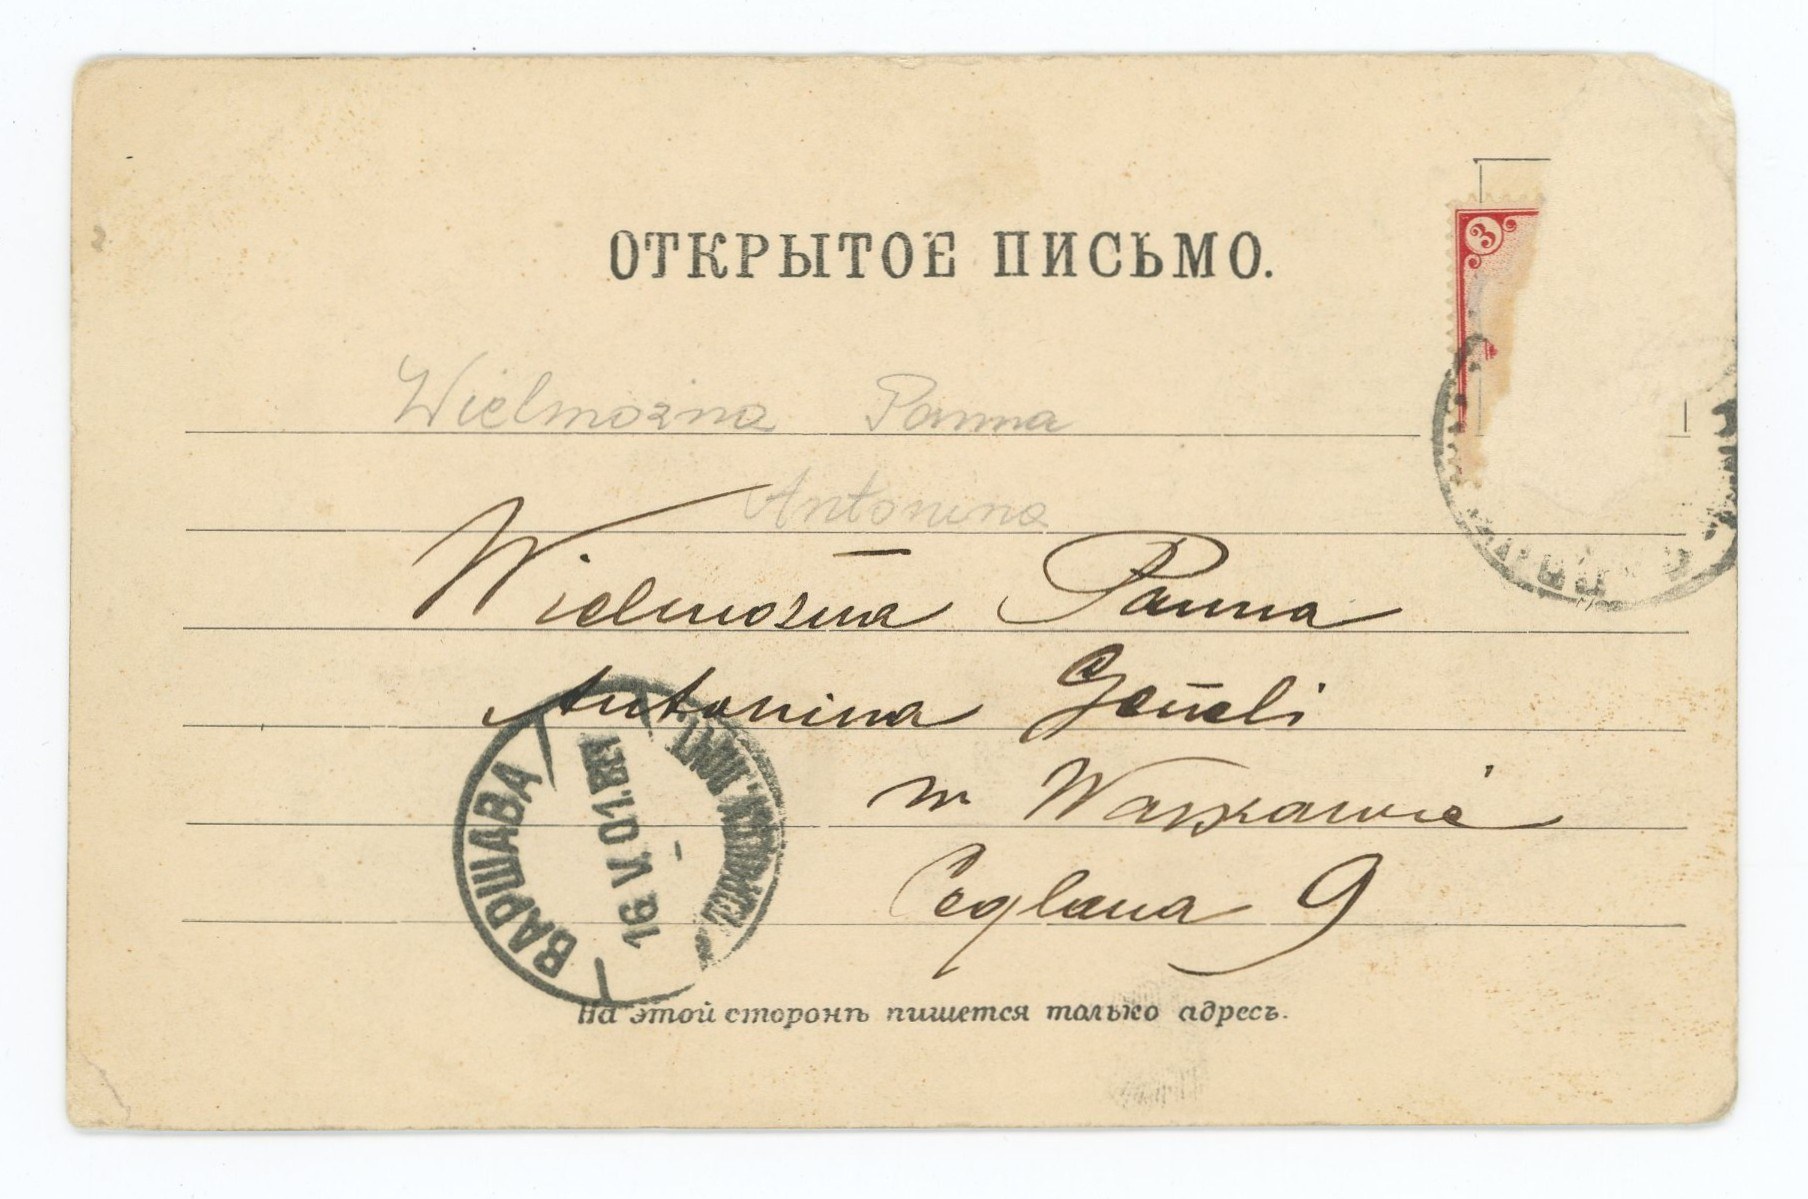 ОТКРЫТОЕ ПИСЬМО.
3
Wielmożna Panna
Antonina
Wielmożna Panna
Antonina
w Warszawie
Ceglana 9
ВАРШАВА
16 V. 01.
На этой сторонѣ пишется только адресъ.